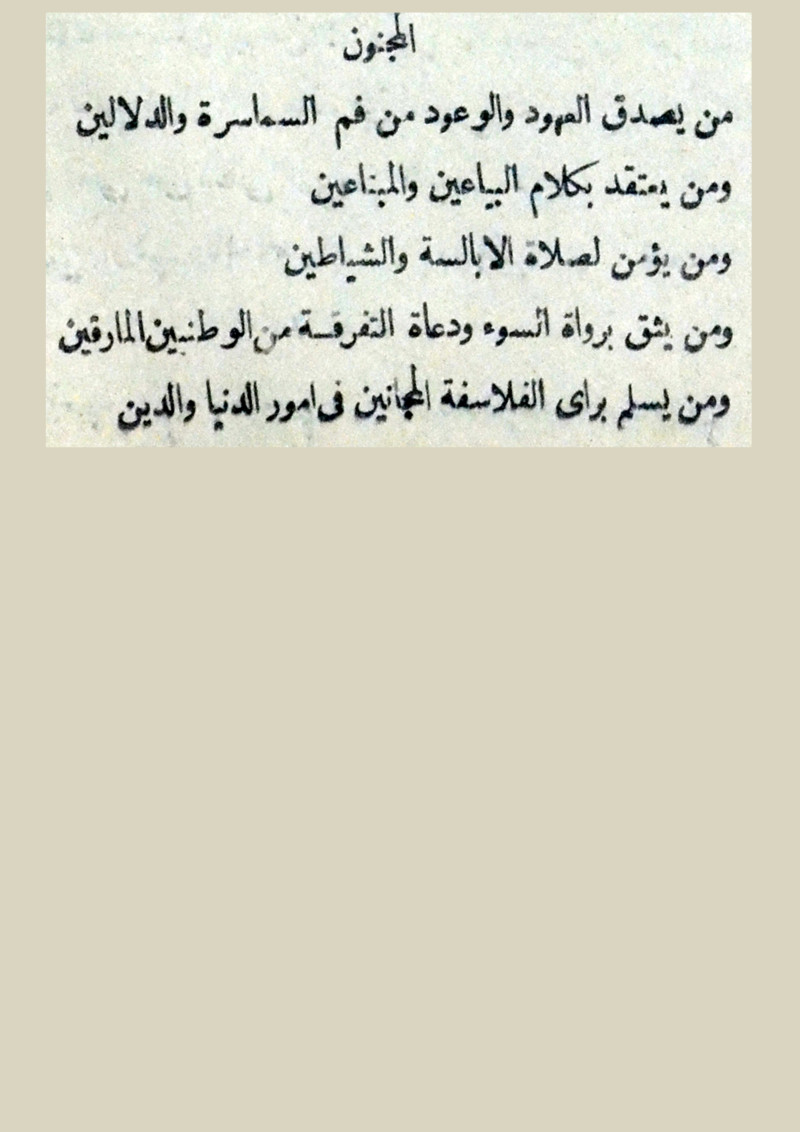 المجنون
من يصدق العهود والوعود من فم السماسرة والدلالين
ومن يعتقد بكلام البياعين والمبتاعين
ومن يؤمن لصلاة الابالسة والشياطين
ومن يثق برواة السوء ودعاة التفرقة من الوطنيين المارقين
ومن يسلم براى الفلاسفة المجانين فى امور الدنيا والدين